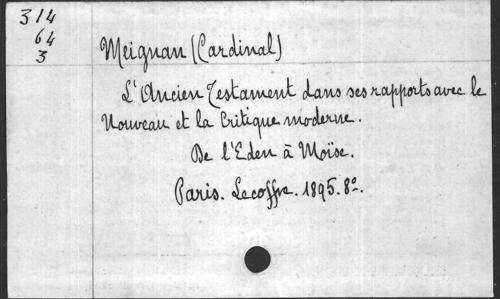 314
64
3
Meignan (Cardinal)
L'Ancien Testament dans ses rapports avec le
Nouveau et la Critique moderne.
De l'Eden à Moïse.
Paris. Lecoffre. 1895. 8º.